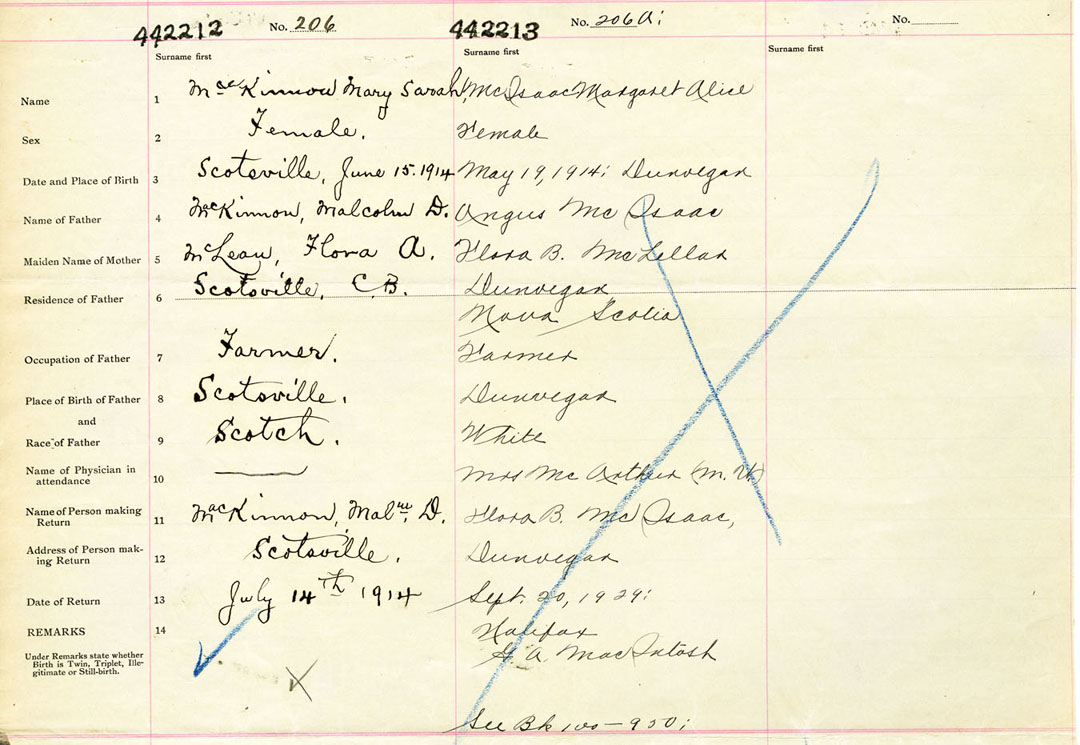 442212 No. 206 442213 No. 206A; No.
Surname first Surname first Surname first
Name 1 MacKinnon Mary Sarah McIsaac Margaret Alice
Sex 2 Female. Female
Date and Place of Birth 3 Scotsville, June 15. 1914 May 19, 1914; Dunvegan
Name of Father 4 MacKinnon, Malcolm D. Angus McIsaac
Maiden Name of Mother 5 McLean, Flora A. Flora B. McLellan
Residence of Father 6 Scotsville, C.B. Dunvegan
Nova Scotia
Occupation of Father 7 Farmer. Farmer
Place of Birth of Father 8 Scotsville. Dunvegan
and
Race of Father 9 Scotch. White
Name of Physician in
attendance 10 Mrs McArthur (M.W)
Name of Person making
Return 11 MacKinnon, Malm. D. Flora B. McIsaac,
Address of Person mak-
ing Return 12 Scotsville. Dunvegan
Date of Return 13 July 14th 1914 Sept. 20, 1929;
REMARKS 14 Halifax
Under Remarks state whether
Birth is Twin, Triplet, Ille-
gitimate or Still-birth.
A. MacIntosh
See Bk 100-950;